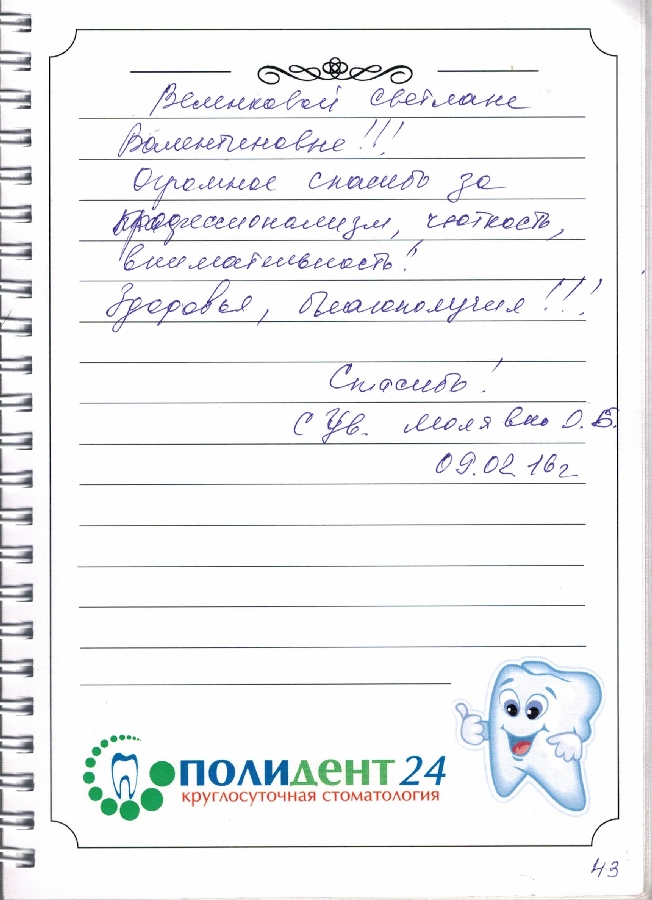 Веленковой Светлане
Валентиновне!!!
Огромное спасибо за
профессионализм, чёткость,
внимательность!
Здоровья, благополучия!!!
Спасибо!
С Ув. Молявко О.Б.
09.02.16г.
ПОЛИДЕНТ 24
круглосуточная стоматология
43